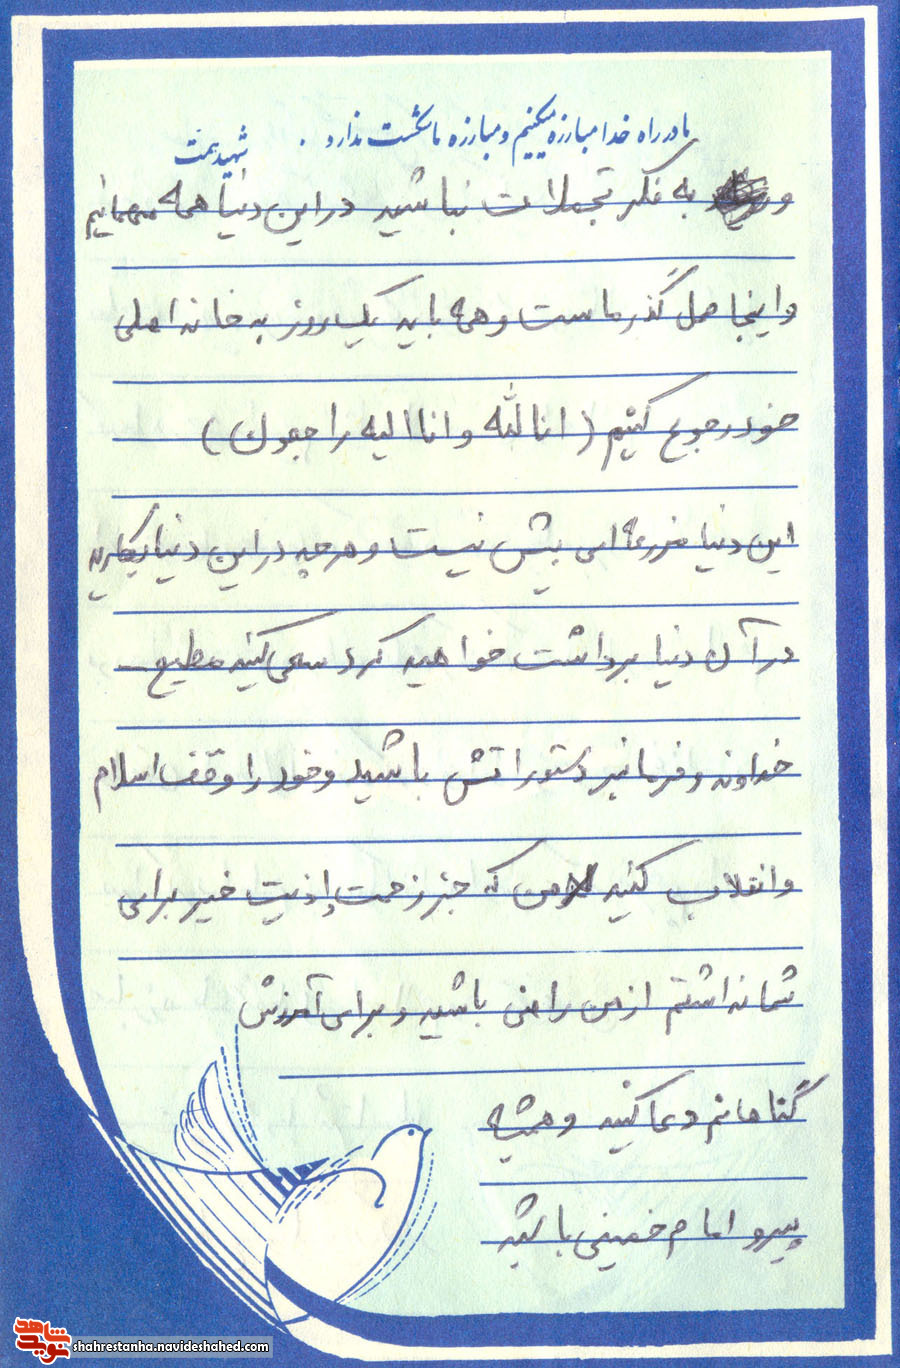 ما در راه خدا مبارزه میکنیم و مبارزه ما شکست ندارد.
شهید همت
و به فکر تجملات نباشید در این دنیا همه مهمانیم
و اینجا محل گذر ماست و همه باید یک روز به خانه اصلی
خود رجوع کنیم (انا لله و انا الیه راجعون)
این دنیا مزرعه ای بیش نیست و هر چه در این دنیا بکارید
در آن دنیا برداشت خواهید کرد سعی کنید مطیع
خداوند و فرمانبر دستوراتش باشید و خود را وقف اسلام
و انقلاب کنید من که جز زحمت و اذیت خیر برای
شما نداشتم از من راضی باشید و برای آمرزش
گناهانم دعا کنید و همیشه
پیرو امام خمینی باشید
نوید شاهد
shahrestanha.navideshahed.com